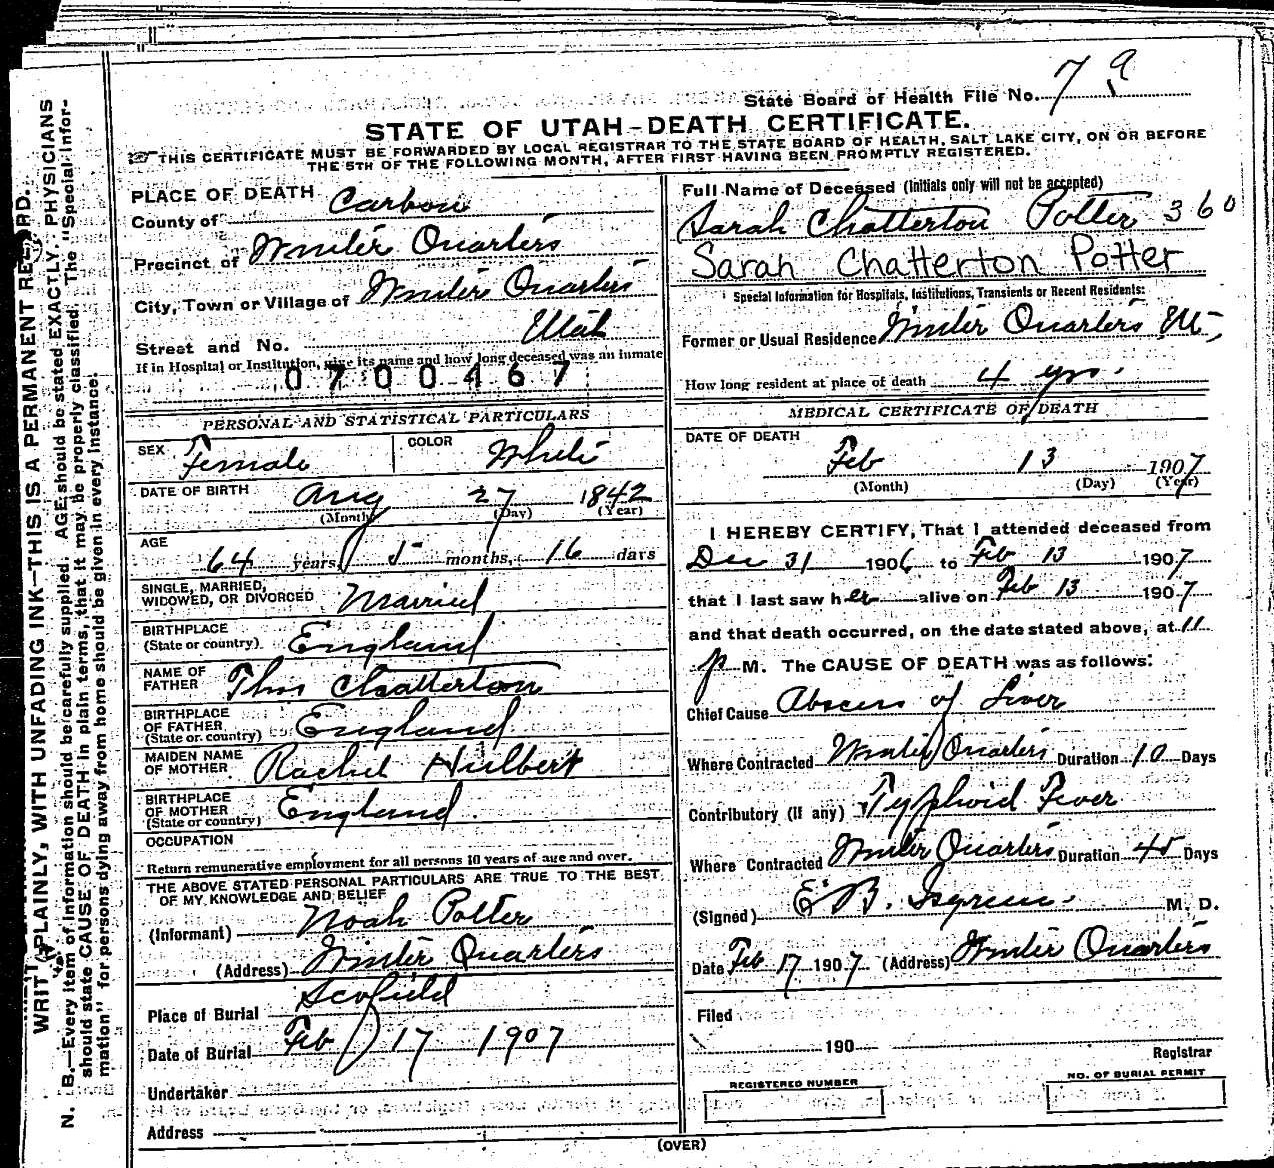 State Board of Health File No. 79
STATE OF UTAH-DEATH CERTIFICATE.
THIS CERTIFICATE MUST BE FORWARDED BY LOCAL REGISTRAR TO THE STATE BOARD OF HEALTH, SALT LAKE CITY, ON OR BEFORE
THE 5TH OF THE FOLLOWING MONTH, AFTER FIRST HAVING BEEN PROMPTLY REGISTERED.
PLACE OF DEATH
County of Carbon
Precinct of Winter Quarters
City, Town or Village of Winter Quarters
Utah
Street and No.
If in Hospital or Institution, give its name and how long deceased was an inmate
0700467
PERSONAL AND STATISTICAL PARTICULARS
SEX Female COLOR White
DATE OF BIRTH Aug 27 1842
(Month) (Day) (Year)
AGE
64 years 5 months, 16 days
SINGLE, MARRIED,
WIDOWED, OR DIVORCED Married
BIRTHPLACE
(State or country) England
NAME OF
FATHER Thos Chatterton
BIRTHPLACE
OF FATHER
(State or country) England
MAIDEN NAME
OF MOTHER Rachel Hulbert
BIRTHPLACE
OF MOTHER
(State or country) England
OCCUPATION
Return remunerative employment for all persons 10 years of age and over.
THE ABOVE STATED PERSONAL PARTICULARS ARE TRUE TO THE BEST
OF MY KNOWLEDGE AND BELIEF
(Informant) Noah Potter
(Address) Winter Quarters
Place of Burial Scofield
Date of Burial Feb 17 1907
Undertaker
Address
Full Name of Deceased (Initials only will not be accepted)
Sarah Chatterton Potter 360
Sarah Chatterton Potter
Special Information for Hospitals, Institutions, Transients or Recent Residents:
Former or Usual Residence Winter Quarters Ut,
How long resident at place of death 4 yrs.
MEDICAL CERTIFICATE OF DEATH
DATE OF DEATH
Feb 13 1907
(Month) (Day) (Year)
I HEREBY CERTIFY, That I attended deceased from
Dec 31 1906 to Feb 13 1907
that I last saw her alive on Feb 13 1907
and that death occurred, on the date stated above, at 11
p M. The CAUSE OF DEATH was as follows:
Chief Cause Abscess of Liver
Where Contracted Winter Quarters Duration 10 Days
Contributory (if any) Typhoid Fever
Where Contracted Winter Quarters Duration 45 Days
(Signed) E B. M. D.
Date Feb 17 1907 (Address) Winter Quarters
Filed
190
Registrar
REGISTERED NUMBER
NO. OF BURIAL PERMIT
(OVER)
PLAINLY, WITH UNFADING INK-THIS IS A PERMANENT
N. B.-Every item of information should be carefully supplied. AGE should be stated EXACTLY. PHYSICIANS
should state CAUSE OF DEATH in plain terms, that it may be properly classified. The "Special Infor-
mation" for persons dying away from home should be given in every instance.